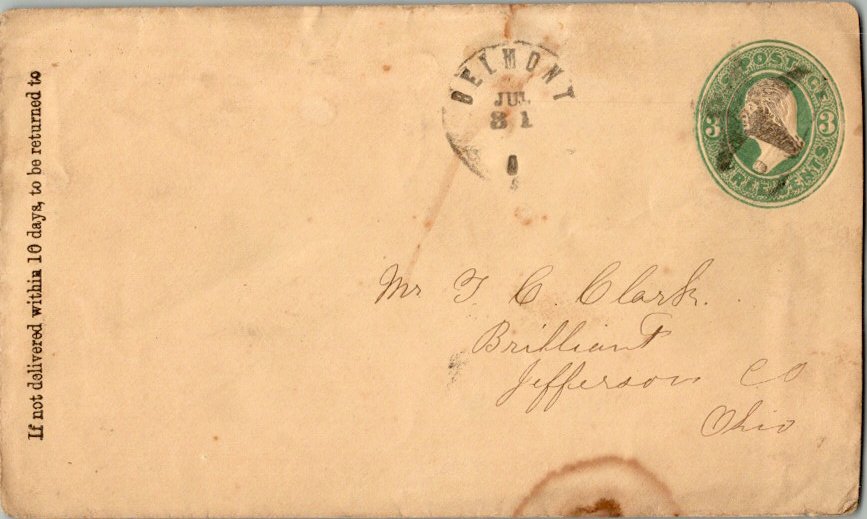 If not delivered within 10 days, to be returned to
BELMONT
JUL
31
O
POSTAGE
3 3
THREE CENTS
Mr T. C. Clark.
Brilliant
Jefferson CO
Ohio